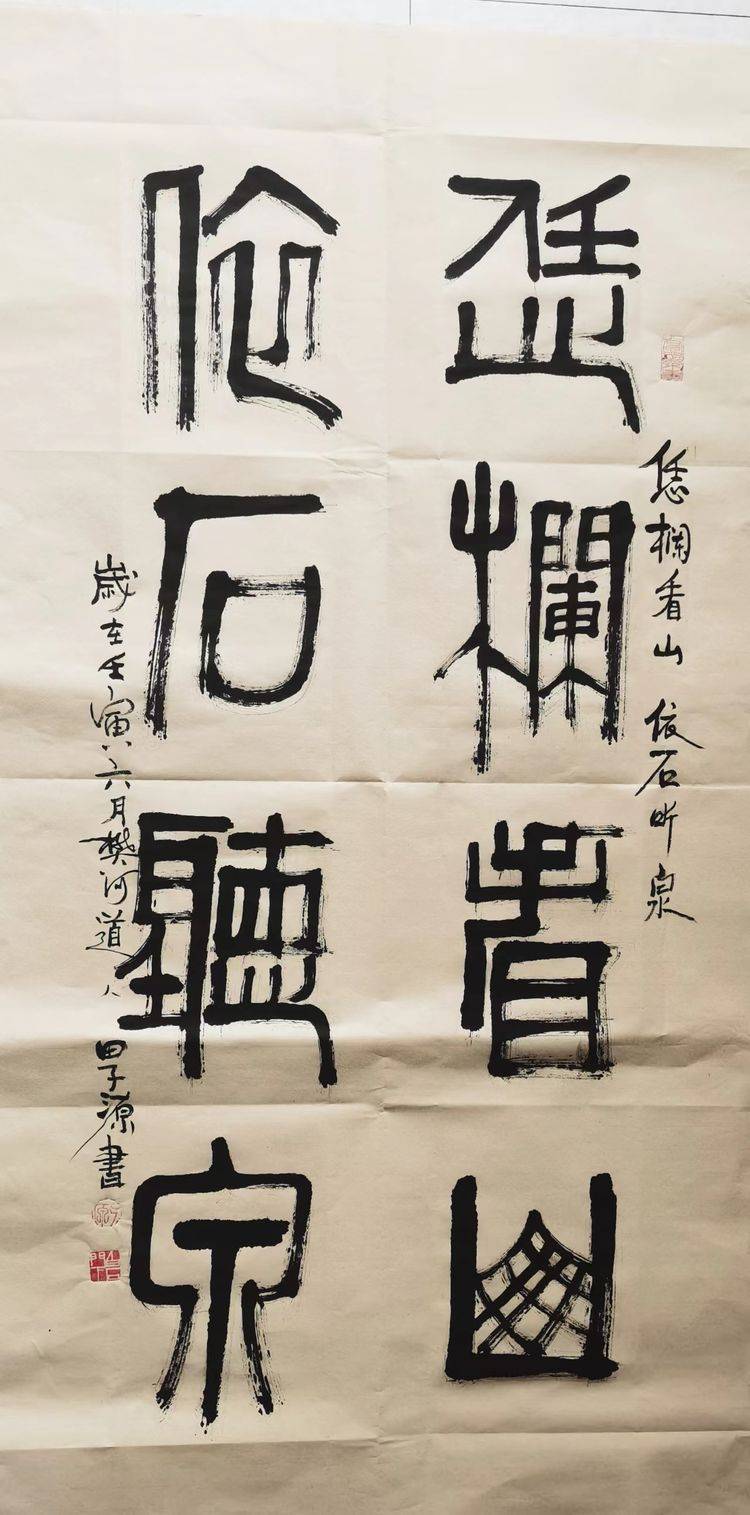 凭欄看山 依石听泉
凭欄看山
依石聽泉
歲在壬寅六月樊河道人 田子源書